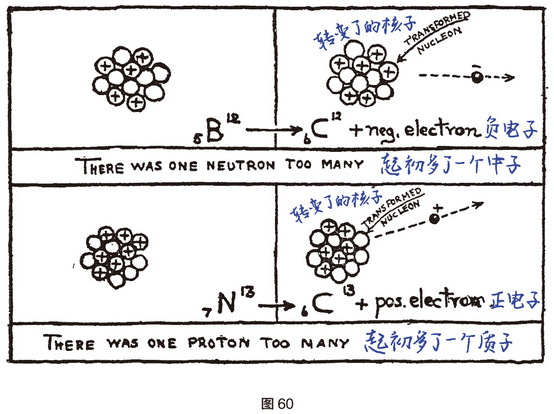 转变了的核子
TRANSFORMED
NUCLEON
₅B¹² → ₆C¹² + neg. electron 负电子
THERE WAS ONE NEUTRON TOO MANY 起初多了一个中子
转变了的核子
TRANSFORMED
NUCLEON
₇N¹³ → ₆C¹³ + pos. electron 正电子
THERE WAS ONE PROTON TOO MANY 起初多了一个质子
图 60